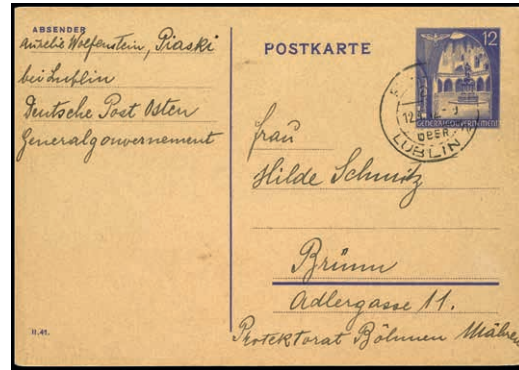 ABSENDER
Aurelie Wolfenstein, Piaski
bei Lublin
Deutsche Post Osten
Generalgouvernement
POSTKARTE
12
GENERALGOUVERNEMENT
12
ÜBER
LUBLIN
Frau
Hilde Schmitz
Brünn
Adlergasse 11.
Protektorat Böhmen Mähren
II.41.